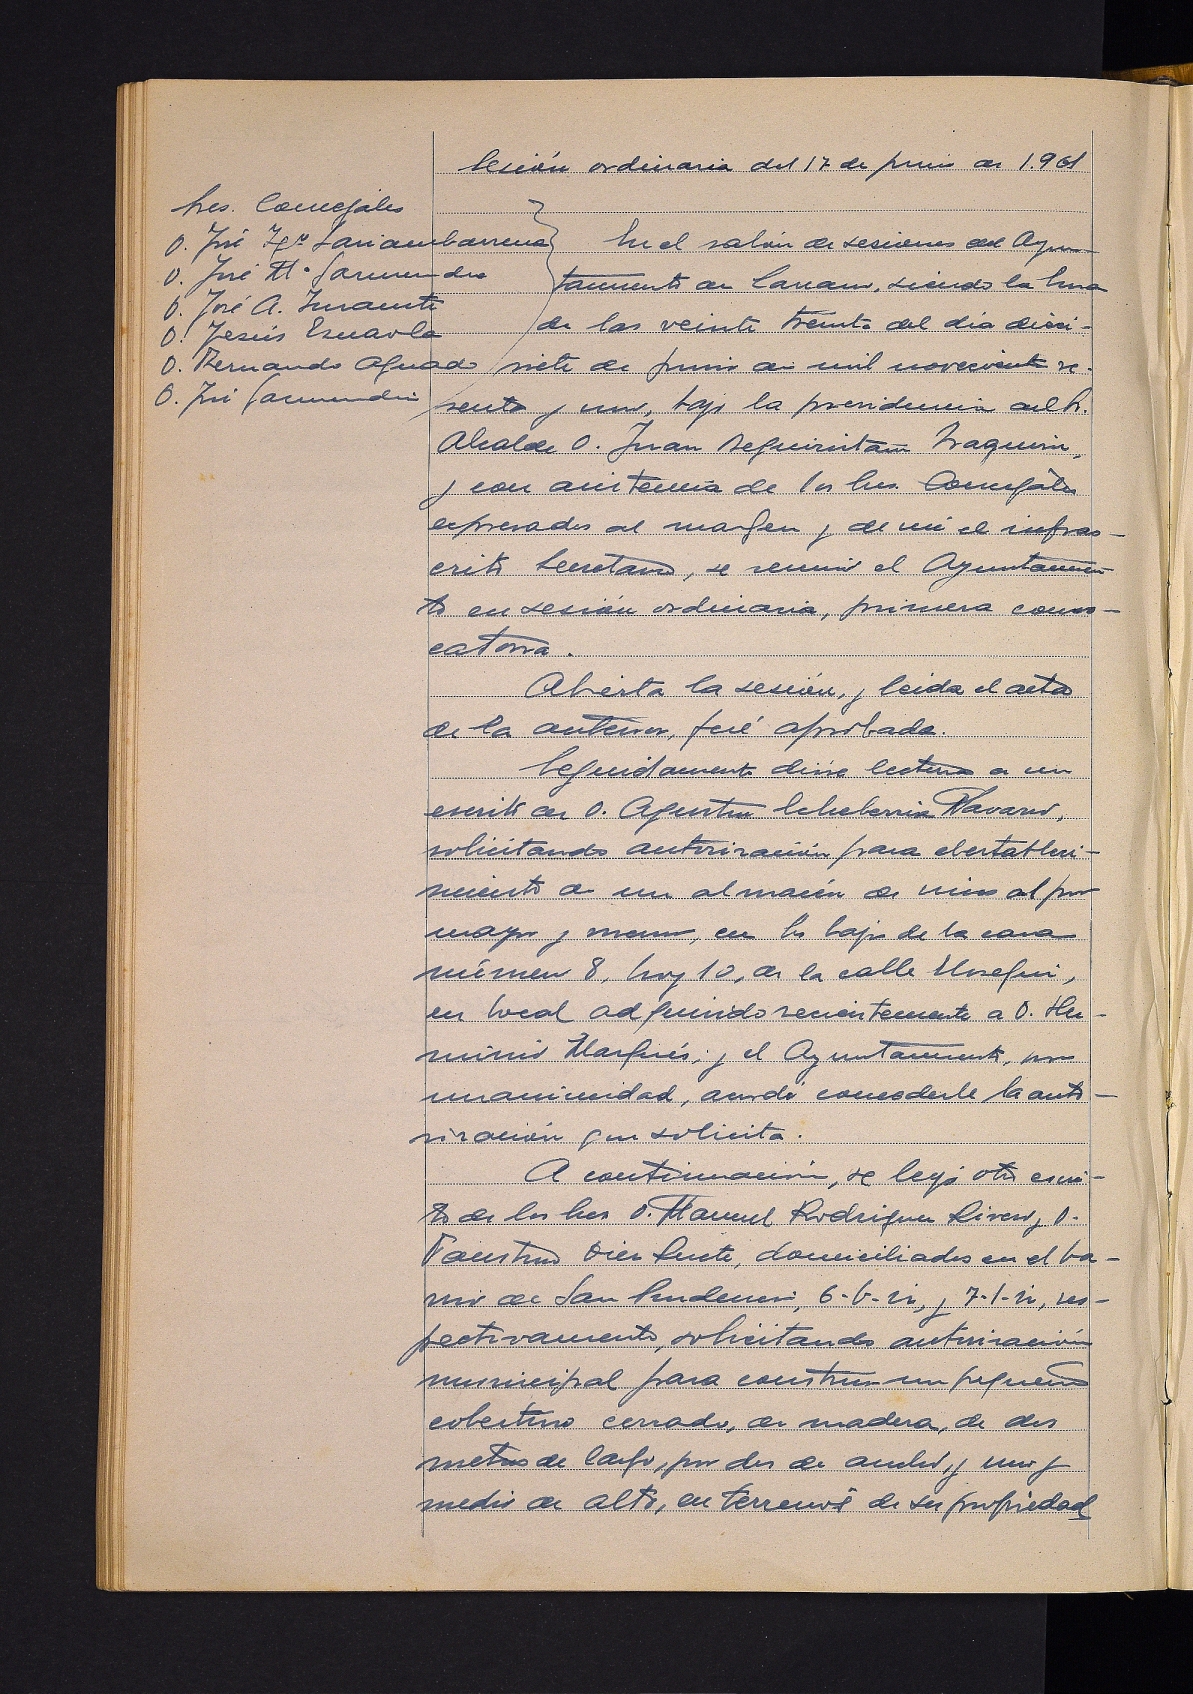 Sesión ordinaria del 17 de junio de 1.961
Sres. Concejales
D. José Igº Lariambarrena
D. José Mª Garmendia
D. José A. Inxausti
D. Jesús Esnaola
D. Fernando Aguado
D. José Garmendia
En el salón de sesiones del Ayun
tamiento de Lasarte, siendo la hora
de las veinte treinta del día dieci-
siete de junio de mil novecientos se-
senta y uno, bajo la presidencia del Sr.
Alcalde D. Juan
y con asistencia de los Sres. Concejales
expresados al margen y de mi el infras-
crito Secretario, se reunió el Ayuntamien
to en sesión ordinaria, primera convo-
catoria.
Abierta la sesión, y leida el acta
de la anterior, fué aprobada.
Seguidamente dióse lectura a un
escrito de D. Agustín Echeberria Navarro,
solicitando autorización para el estableci-
miento de un almacén de vinos al por
mayor y menor, en los bajos de la casa
número 8, hoy 10, de la calle
en local adquirido recientemente a D. He-
rminio Marqués; y el Ayuntamiento, por
unanimidad, acordó concederle la auto-
rización que solicita.
A continuación, se leyó otro escri-
to de los Sres D. Manuel Rodriguez Rivero y D.
Faustino Diez Puente, domiciliados en el ba-
rrio de San Prudencio, 6-b-iz, y 7-1-iz, res-
pectivamente, solicitando autorización
municipal para construir un pequeño
cobertizo cerrado, de madera, de dos
metros de largo, por dos de ancho, y uno y
medio de alto, en terrenos de su propiedad